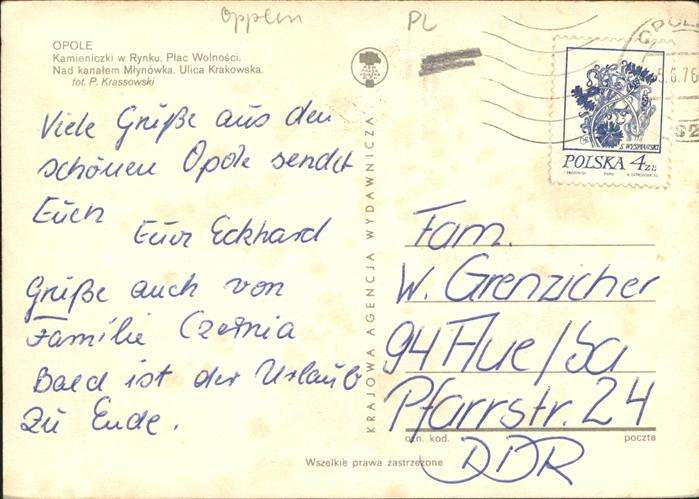 Oppeln
PL
OPOLE
Kamieniczki w Rynku. Plac Wolności.
Nad kanałem Młynówka. Ulica Krakowska.
fot. P. Krassowski
Viele Grüße aus den
schönen Opole sendet
Euch
Euer Eckhard
Grüße auch von
Familie
Bald ist der Urlaub
zu Ende.
KRAJOWA AGENCJA WYDAWNICZA
OPOLE
5.6.76
S. WYSPIAŃSKI
POLSKA 4 ZŁ
Fam.
W. Grenzicher
94 Aue/Sa
Pfarrstr. 24
DDR
ozn. kod. poczta
Wszelkie prawa zastrzeżone